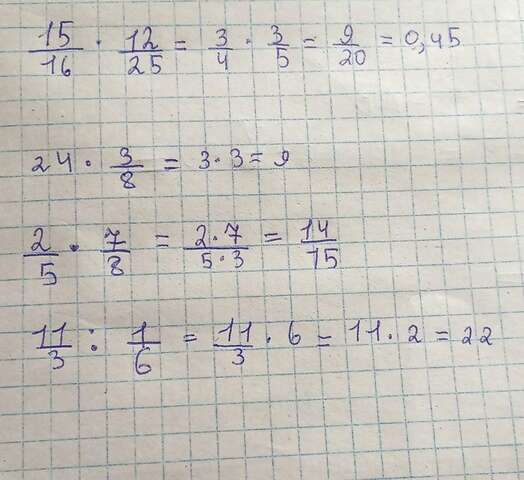 15/16 · 12/25 = 3/4 · 3/5 = 9/20 = 0,45
24 · 3/8 = 3·3 = 9
2/5 · 7/8 = 2·7/5·3 = 14/15
11/3 : 1/6 = 11/3 · 6 = 11·2 = 22